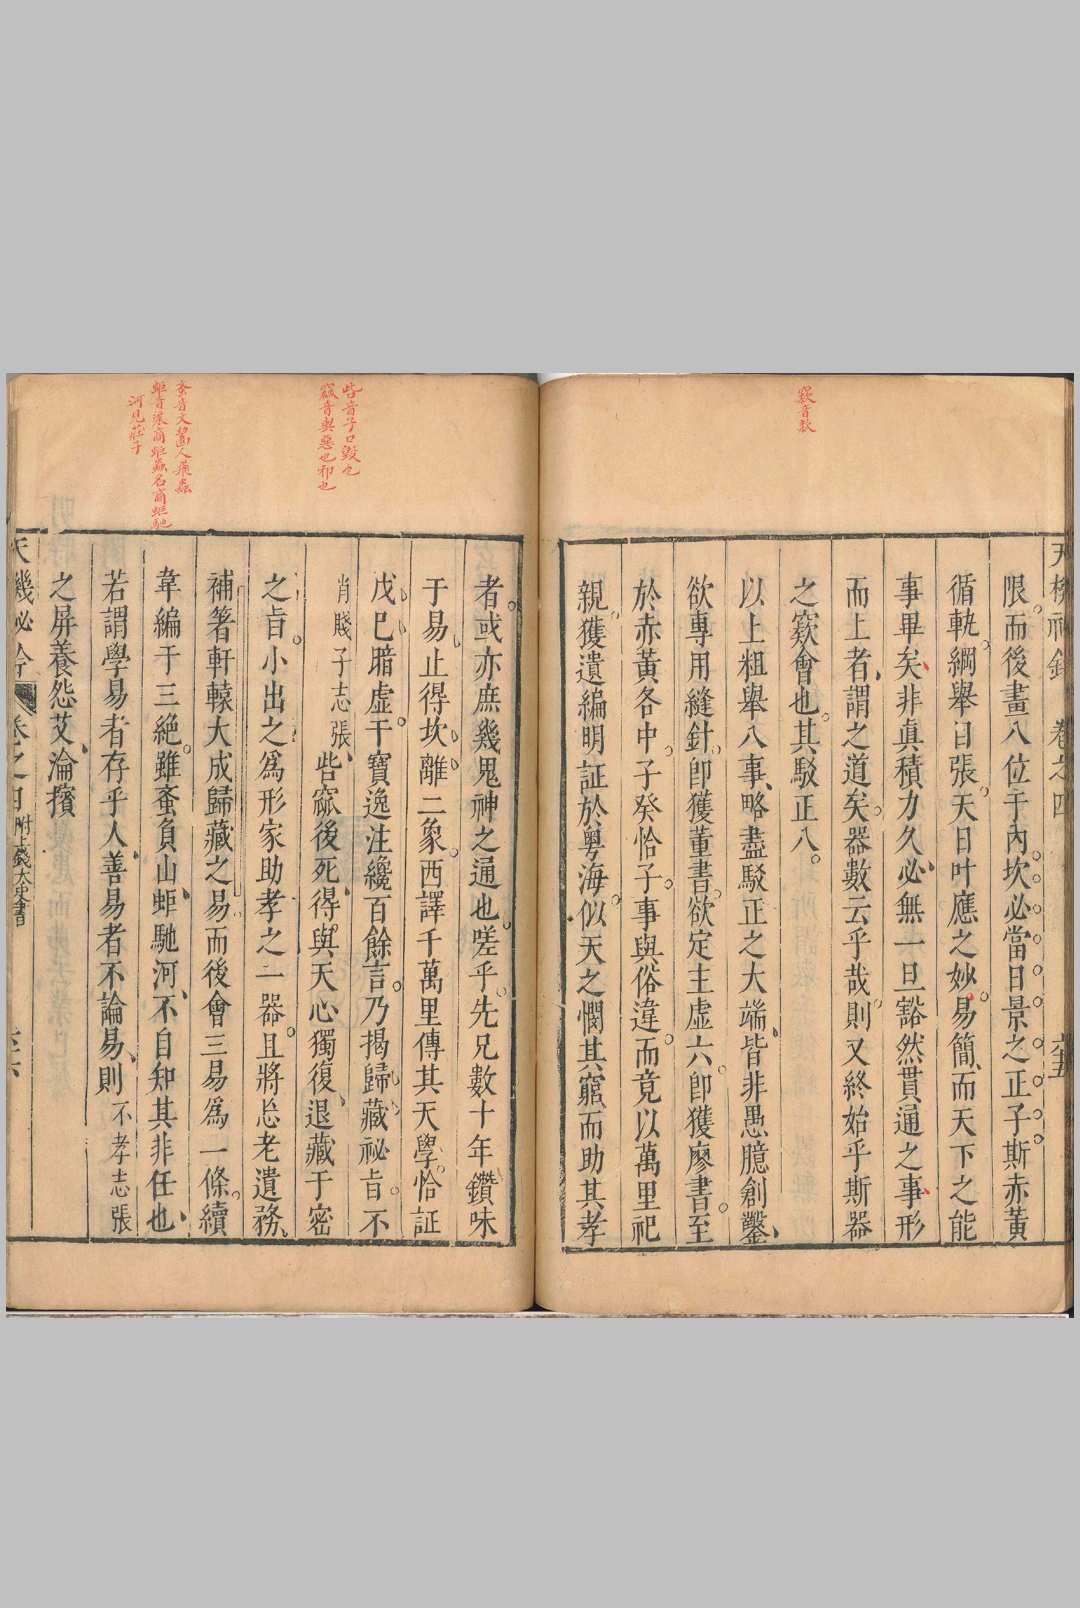 窾音款
限而後畫八位于內坎必當日景之正子斯赤黃
循軌綱舉目張天日叶應之妙易簡而天下之能
事畢矣非真積力久必無一旦豁然貫通之事形
而上者謂之道矣器數云乎哉則又終始乎斯器
之窾會也其駁正八
以上粗舉八事略盡駁正之大端皆非愚臆創鑿
欲專用縫針卽獲董書欲定主虛六卽獲廖書至
於赤黃各中子癸恰子事與俗違而竟以萬里祀
親獲遺編明証於粵海似天之憫其窮而助其孝
呰音子口毀也
窳音與惡也邪也
蚉音文齧人飛蟲
河見莊子
者或亦庶幾鬼神之通也嗟乎先兄數十年鑽味
于易止得坎離二象西譯千萬里傳其天學恰証
戊巳暗虛干寶逸注纔百餘言乃揭歸藏祕旨不
肖賤子志張呰窳後死得與天心獨復退藏于密
之旨小出之為形家助孝之一器且將忩老遺務
補箸軒轅大成歸藏之易而後會三易為一條續
韋編于三絕雖蚉負山蚷馳河不自知其非任也
若謂學易者存乎人善易者不論易則不孝志張
之屏養怨艾淪擯